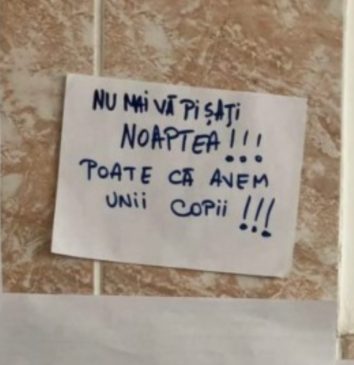 NU MAI VĂ PIȘAȚI
NOAPTEA!!!
POATE CĂ AVEM
UNII COPII!!!